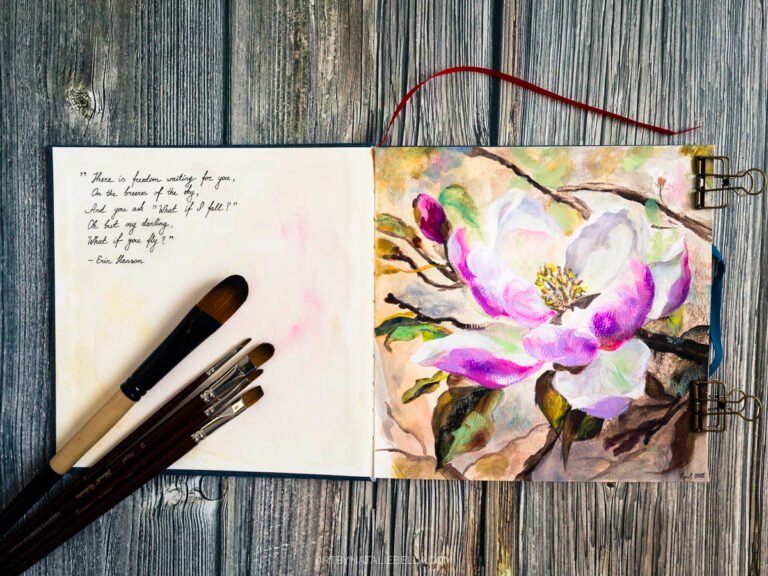 " There is freedom waiting for you,
On the breezes of the sky,
And you ask "What if I fall?"
Oh but my darling,
What if you fly? "
- Erin Hanson
ARTBYNATALIEBELLA.COM